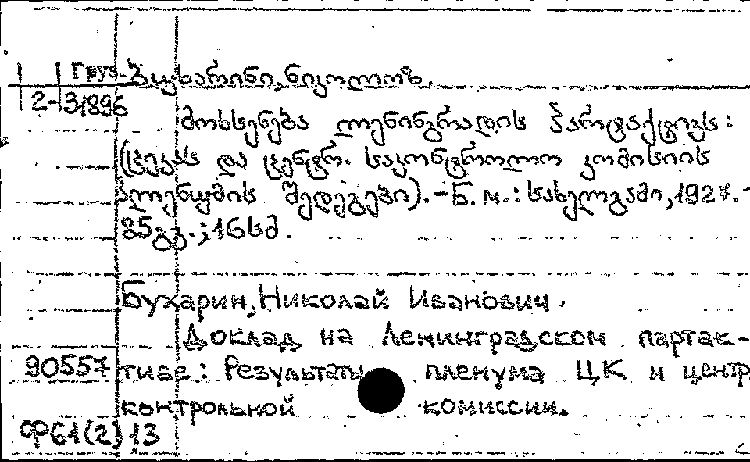 Груз.
2-31896
ბუხარინი, ნიკოლოზ.
მოხსენება ლენინგრადის პარტაქტივს:
(ცეკას და ცენტრ. საკონტროლო კომისიის
პლენუმის შედეგები).-Б.м.: სახელგამი, 1927.-
85გვ.; 16სმ.
Бухарин, Николай Иванович.
Доклад на Ленинградском партак-
90557 тиве: Результаты пленума ЦК и центр
контрольной комиссии.
Ф61(2)13